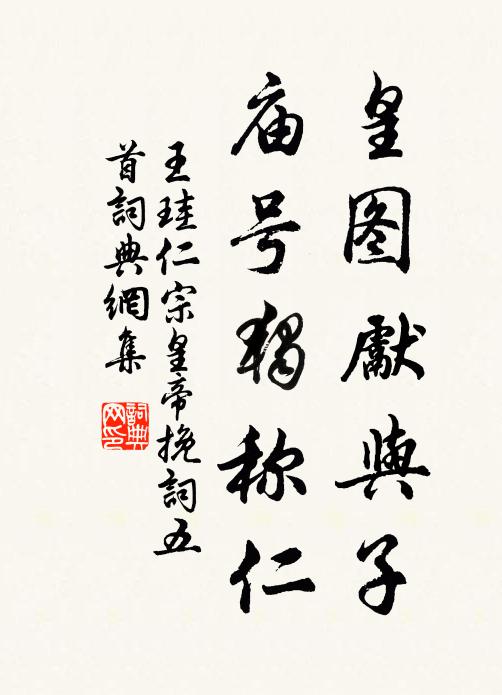 皇图獻與子
庙号獨称仁
王珪仁宗皇帝挽詞五
首詞典網集
詞典网印